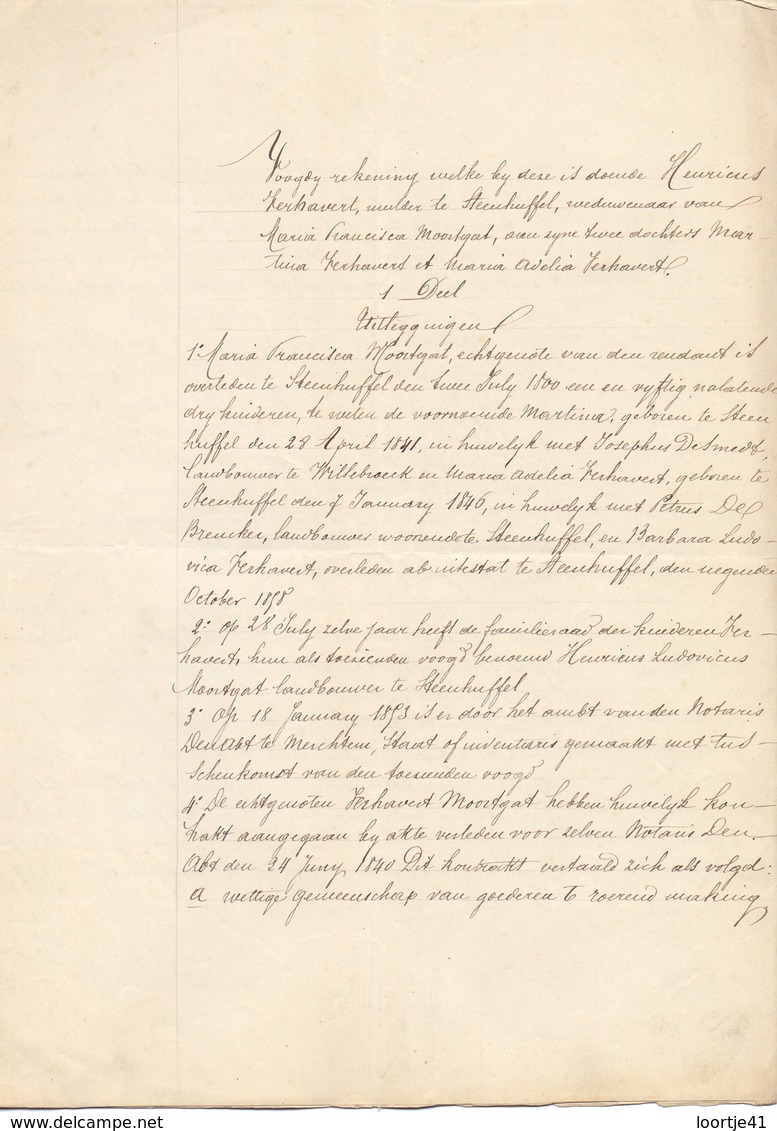 Voogdy rekening welke by deze is doende Henricus
Verhavert, mulder te Steenhuffel, weduwenaar van
Maria Francisca Moortgat, aan zyne twee dochters Mar-
tina Verhavert et Maria Adelia Verhavert.
1 Deel
Uitleggingen
1° Maria Francisca Moortgat, echtgenote van den rendant is
overleden te Steenhuffel den twee July 1800 een en vyftig, nalatende
dry kinderen, te weten de voornoemde Martina, geboren te Steen
huffel den 28 April 1841, in huwelyk met Josephus De Smedt,
landbouwer te Willebroeck en Maria Adelia Verhavert, geboren te
Steenhuffel den 7 January 1846, in huwelyk met Petrus De
Breucker, landbouwer woonende te Steenhuffel, en Barbara Ludo-
vica Verhavert, overleden ab intestat te Steenhuffel, den negenden
October 1858
2° op 28 July zelve jaar heeft de familieraad der kinderen Ver-
havert, hun als toezienden voogd benoemd Henricus Ludovicus
Moortgat landbouwer te Steenhuffel
3° Op 18 January 1853 is er door het ambt van den Notaris
Den Abt te Merchtem, Staat of inventaris gemaakt met tus-
schenkomst van den toezienden voogd
4° De echtgenoten Verhavert Moortgat hebben huwelyk kon-
trakt aangegaan by akte verleden voor zelven Notaris Den-
Abt den 24 Juny 1840 Dit kontrackt vertaald zich als volgd:
a wettige gemeenschap van goederen te roerend making
loortje41